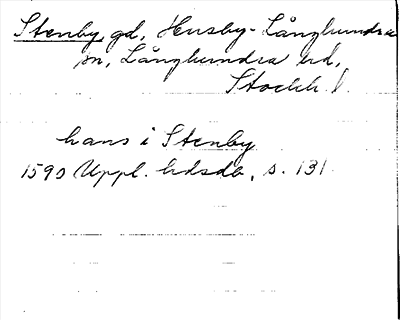 Stenby gd, Husby-Långhundra
sn, Långhundra hd,
Stockh. l.
hans i Stenby
1590 Uppl. hdsdb, s. 131